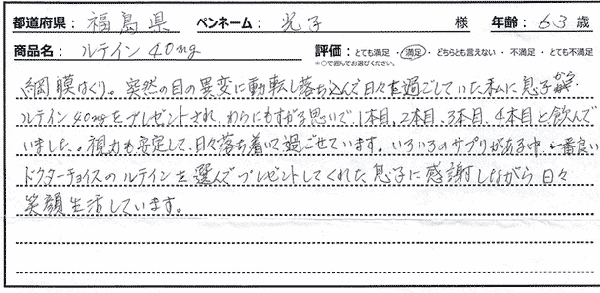 都道府県： 福島県 ペンネーム： 光子 様 年齢： 63 歳
商品名： ルテイン 40mg 評価： とても満足 ・ 満足 ・ どちらとも言えない ・ 不満足 ・ とても不満足
＊○で囲んでお選びください。
網膜はくり。突然の目の異変に動転し落ち込んで日々を過ごしていた私に息子から
ルテイン40mgをプレゼントされ、わらにもすがる思いで、1本目、2本目、3本目、4本目と飲んで
いました。視力も安定して、日々落ち着いて過ごせています。いろいろのサプリがある中、一番良い
ドクターチョイスのルテインを選んでプレゼントしてくれた息子に感謝しながら日々
笑顔生活しています。